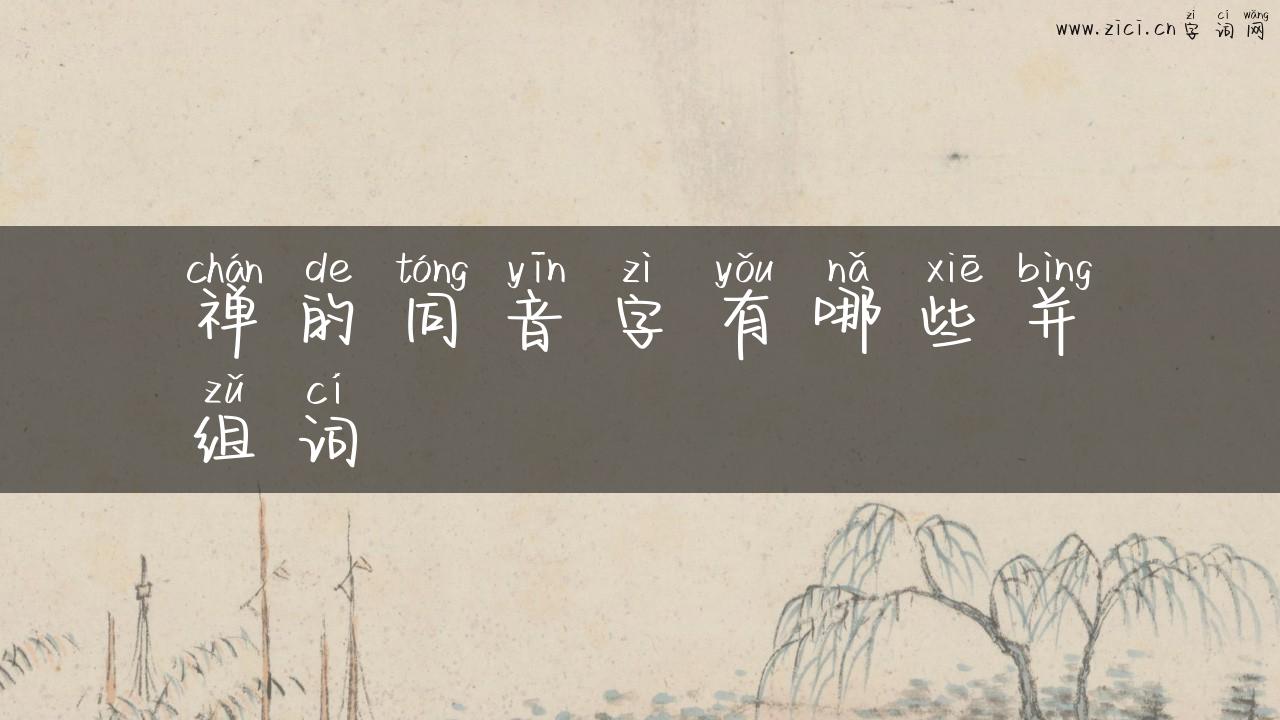 zì cí wǎng
www.zici.cn 字 词 网
chán de tóng yīn zì yǒu nǎ xiē bìng
禅 的 同 音 字 有 哪 些 并
zǔ cí
组 词